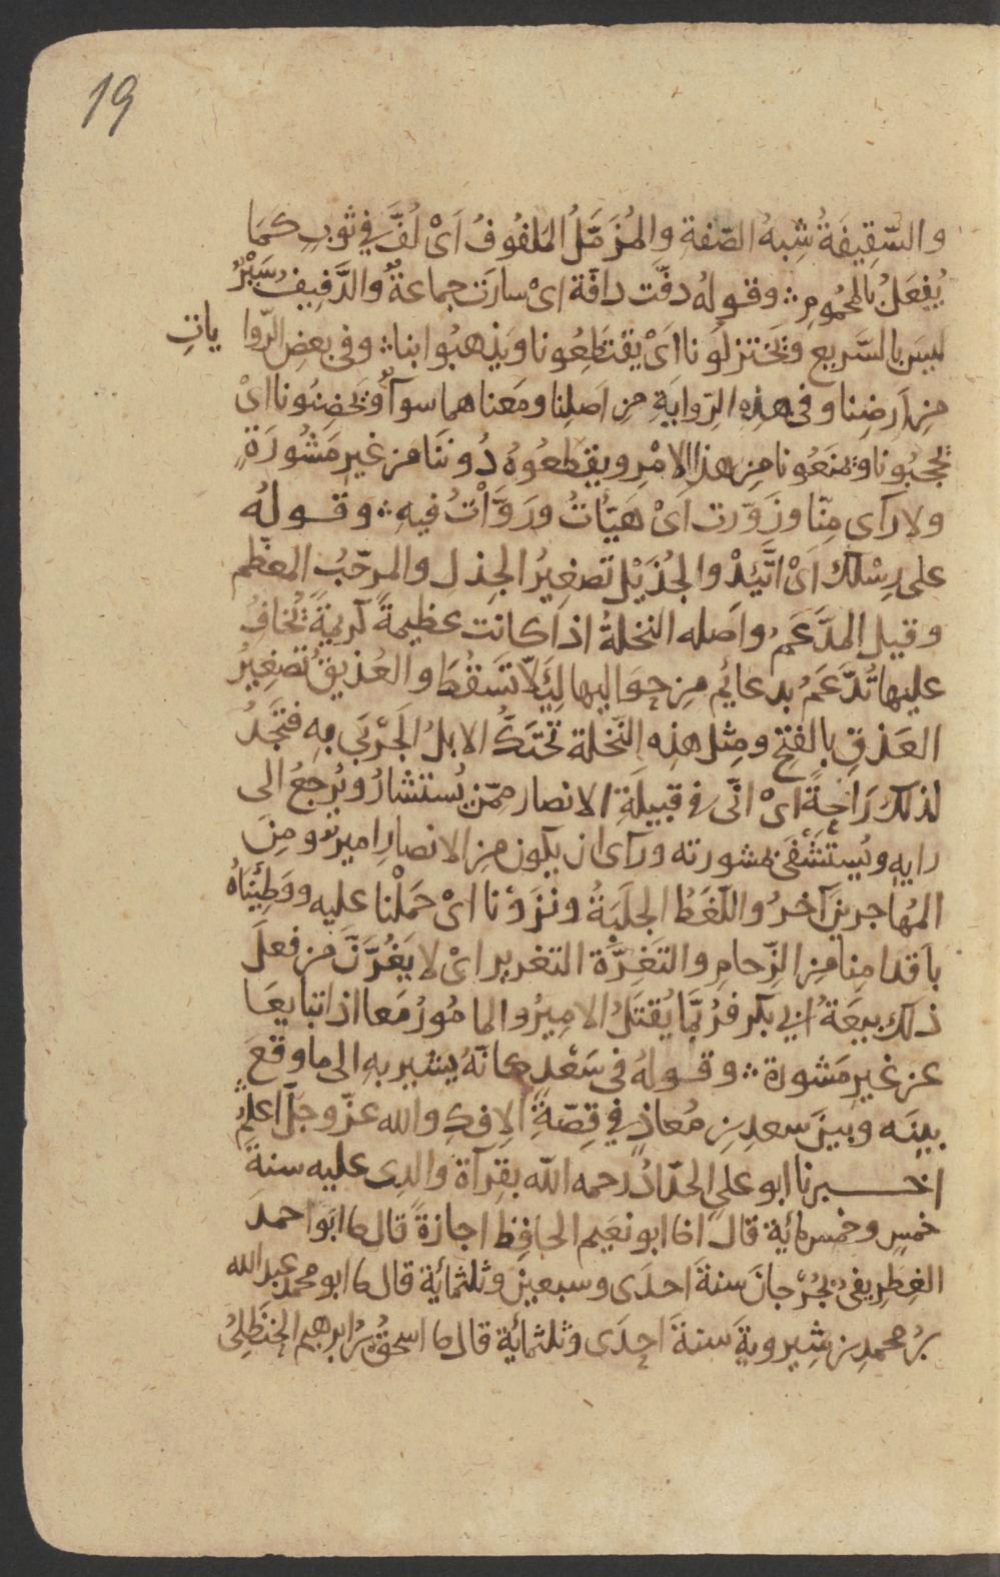 19
والسّقِيفَةُ شِبهُ الصّفةِ والمُزَمَّلُ المَلفُوفُ اَىْ لُفَّ فى ثوبٍ كمَا
يُفعَلُ بالمحُمومِ ؞ وقوله دفّت دافّة اىْ سارَت جماعَةٌ والدَّفِيف سَيْرٌ
ليسَ بالسَّريع وتختزلُونا اىْ يقتَطِعُونا ويَذهبُوا بنا ؞ وفى بعضِ الرّوا ياتِ
مِن اَرضِنا وفى هذِه الرّوايَةِ مِن اَصلِنا ومَعناهما سوآٌ وتحضنُونا اىْ
تحجبُونا وتمنَعُونا مِن هذا الامْرِ ويقطعُوهُ دُوننَا من غيرِ مَشُورَةٍ
ولا رآى مِنّا وزَوّرت اىْ هَيّأتُ ورَوَّأتُ فيهِ ؞ وقوله
على رِسْلك اَىْ اتَّئِدْ والجُذَيْل تصغيرُ الجِذل والمرجّبُ المعَظّم
وقيل المدَّعَم واَصله النخلةُ اذا كانت عظيمةً كريمَةً تُخافُ
عليها تُدَّعَمُ بدعائِم مِن حوَاليها لِئَلّا تَسَقُط والعُذيق تصغيرُ
العَذقِ بالفتحِ ومِثل هذِه النّخلة تحتَكُّ الابلُ الجَرْبَى بهِ فتَجِدُ
لذلك رَاحةً اىْ انّى فى قبيلَةِ الانصار ممّن يُستشارُ ويُرجعُ الى
رايهِ ويُستَشْفَى بمشورته ورآى ان يكون مِن الانصارِ اميرٌ ومِنَ
المُهاجرينَ آخرُ واللّغَطُ الجلَبَةُ ونَزَوْنا اىْ حَمَلْنا عليهِ ووَطِئْناهُ
باَقدامِنا مِن الزّحامِ والتَغِرَّة التغرير اىْ لا يَغُرَّنَّ مَن فعلَ
ذلك بيعَةُ ابى بكر فرُبّما يُقتَلُ الامِيرُ والمامُورُ مَعا اذا تبايعَا
عن غيرِ مَشورة ؞ وقوله فى سَعْدٍ كانّهُ يشير بهِ الى ما وقعَ
بينَه وبينَ سعدِ بن مُعاذٍ فى قِصّةِ الإفكِ والله عزّ وجلّ اعلمُ
اخبرنا ابو علىٍ الحدّادُ رحمه الله بقرآة والدى عليه سنةَ
خمسٍ وخمسمائة قال انا ابو نعَيم الحافِظ اجازةً قال ثنا ابَو احمدَ
الغِطرِيفىُ بجُرْجانَ سنةَ احدَى وسبعينَ وثلثمائة قال ثنا ابو محمد عبد الله
بنُ محمدِ بن شِيرويةَ سنةَ احدَى وثلثمائة قال ثنا اسحقُ بنُ ابرهيم الحنظلِىُ